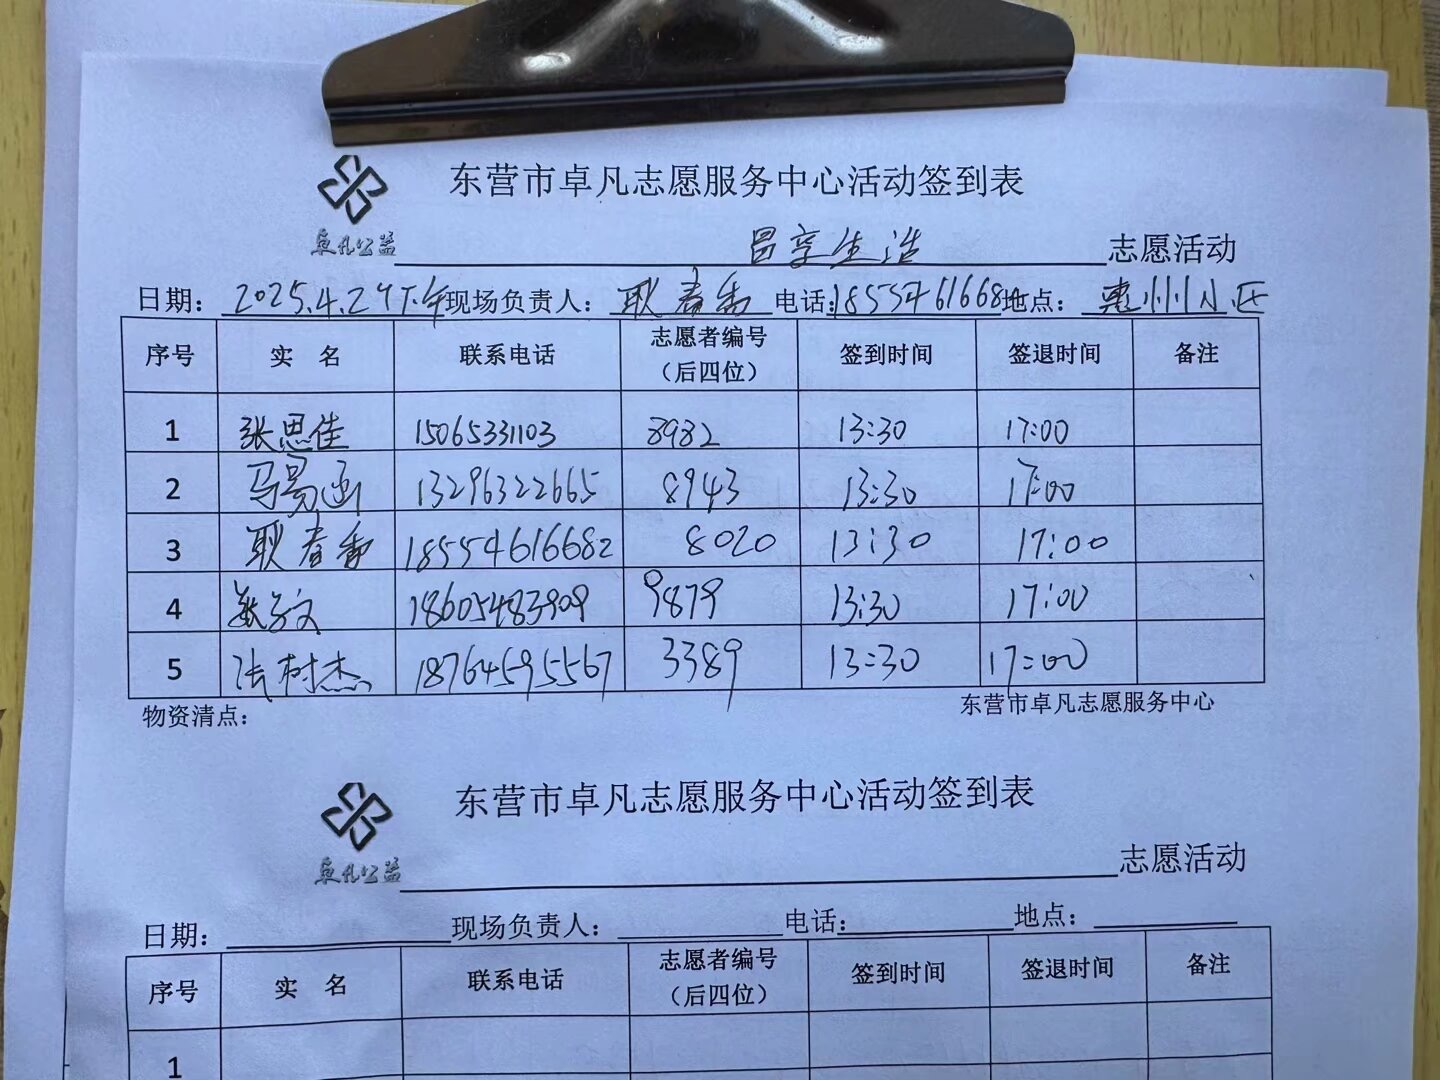 东营市卓凡志愿服务中心活动签到表
卓凡公益 昌享生活 志愿活动
日期: 2025.4.29下午 现场负责人: 耿春香 电话: 18554616682 地点: 惠州小区
序号 实 名 联系电话 志愿者编号（后四位） 签到时间 签退时间 备注
1 张思佳 15065331103 8982 13:30 17:00
2 马易函 13296322665 8943 13:30 17:00
3 耿春香 18554616682 8020 13:30 17:00
4 18605483909 9879 13:30 17:00
5 张树杰 18764595567 3389 13:30 17:00
物资清点: 东营市卓凡志愿服务中心
东营市卓凡志愿服务中心活动签到表
卓凡公益 志愿活动
日期: 现场负责人: 电话: 地点:
序号 实 名 联系电话 志愿者编号（后四位） 签到时间 签退时间 备注
1